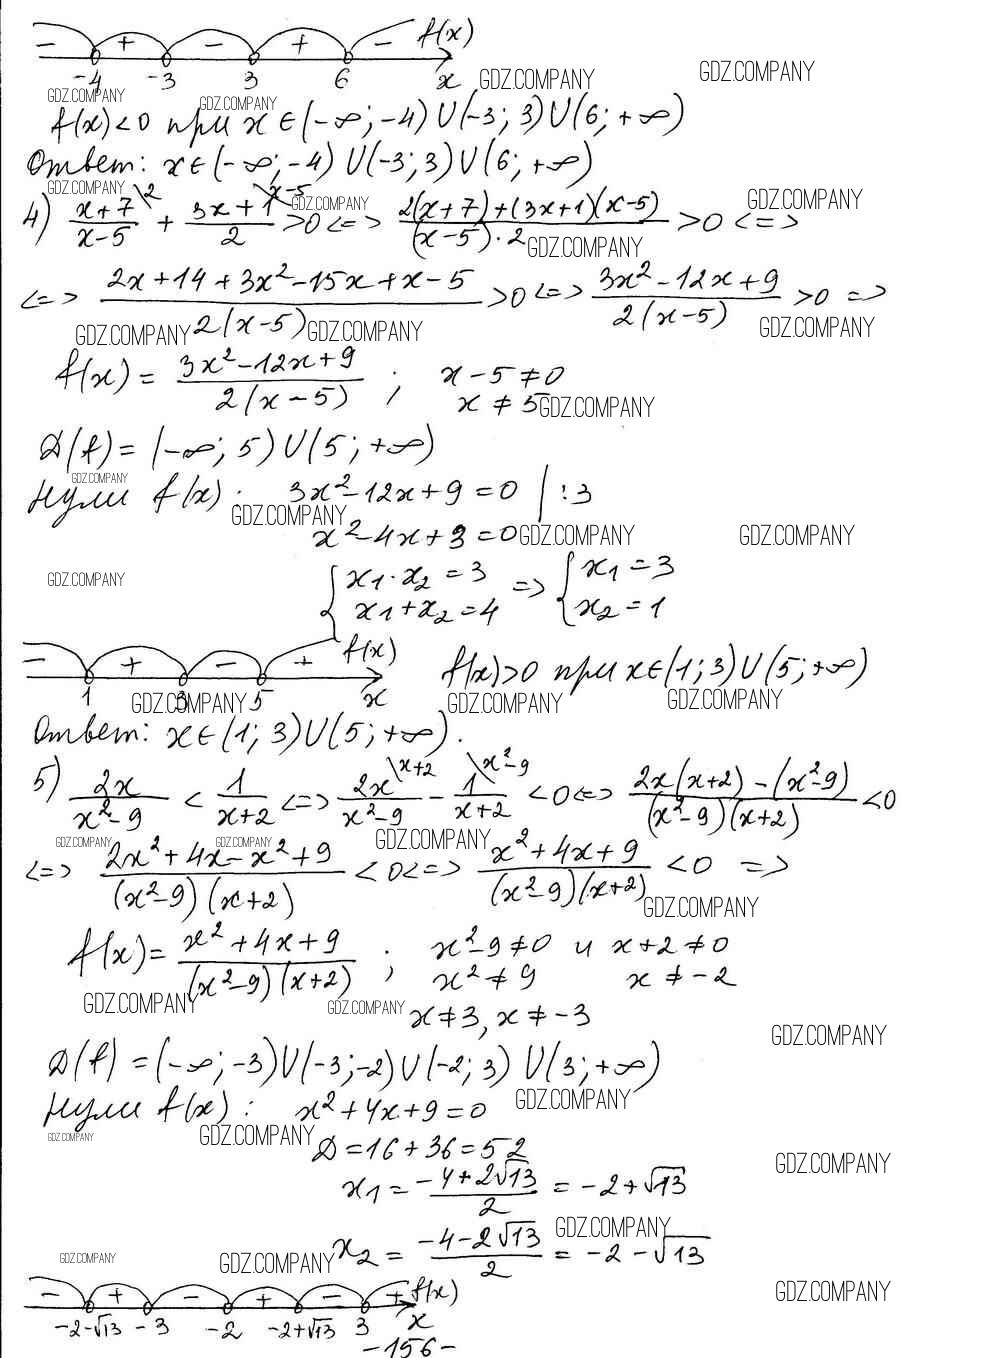 − + − + − f(x)
-4 -3 3 6 x GDZ.COMPANY GDZ.COMPANY
GDZ.COMPANY GDZ.COMPANY
f(x)<0 при x∈(-∞;-4)∪(-3;3)∪(6;+∞)
Ответ: x∈(-∞;-4)∪(-3;3)∪(6;+∞)
GDZ.COMPANY GDZ.COMPANY GDZ.COMPANY
4) (x+7)/(x-5) \2 + (3x+1)/2 \x-5 >0 <=> (2(x+7)+(3x+1)(x-5))/((x-5)·2) >0 <=>
GDZ.COMPANY
<=> (2x+14+3x²-15x+x-5)/(2(x-5)) >0 <=> (3x²-12x+9)/(2(x-5)) >0 =>
GDZ.COMPANY GDZ.COMPANY GDZ.COMPANY
f(x) = (3x²-12x+9)/(2(x-5)) ; x-5≠0
x≠5 GDZ.COMPANY
D(f)=(-∞;5)∪(5;+∞)
GDZ.COMPANY
Нули f(x): 3x²-12x+9=0 | :3
GDZ.COMPANY
x²-4x+3=0 GDZ.COMPANY GDZ.COMPANY
GDZ.COMPANY { x₁·x₂=3 => { x₁=3
x₁+x₂=4 x₂=1
− + − + f(x)
1 3 5 x f(x)>0 при x∈(1;3)∪(5;+∞)
GDZ.COMPANY GDZ.COMPANY GDZ.COMPANY
Ответ: x∈(1;3)∪(5;+∞).
5) 2x/(x²-9) < 1/(x+2) <=> 2x/(x²-9) \x+2 - 1/(x+2) \x²-9 <0 <=> (2x(x+2)-(x²-9))/((x²-9)(x+2)) <0
GDZ.COMPANY GDZ.COMPANY GDZ.COMPANY
<=> (2x²+4x-x²+9)/((x²-9)(x+2)) <0 <=> (x²+4x+9)/((x²-9)(x+2)) <0 =>
GDZ.COMPANY
f(x)= (x²+4x+9)/((x²-9)(x+2)) ; x²-9≠0 и x+2≠0
x²≠9 x≠-2
GDZ.COMPANY GDZ.COMPANY x≠3, x≠-3
GDZ.COMPANY
D(f)=(-∞;-3)∪(-3;-2)∪(-2;3)∪(3;+∞)
Нули f(x): x²+4x+9=0 GDZ.COMPANY
GDZ.COMPANY GDZ.COMPANY D=16+36=52
GDZ.COMPANY
x₁= (-4+2√13)/2 = -2+√13
GDZ.COMPANY
GDZ.COMPANY GDZ.COMPANY x₂= (-4-2√13)/2 = -2-√13
− + − + − + f(x) GDZ.COMPANY
-2-√13 -3 -2 -2+√13 3 x
-156-